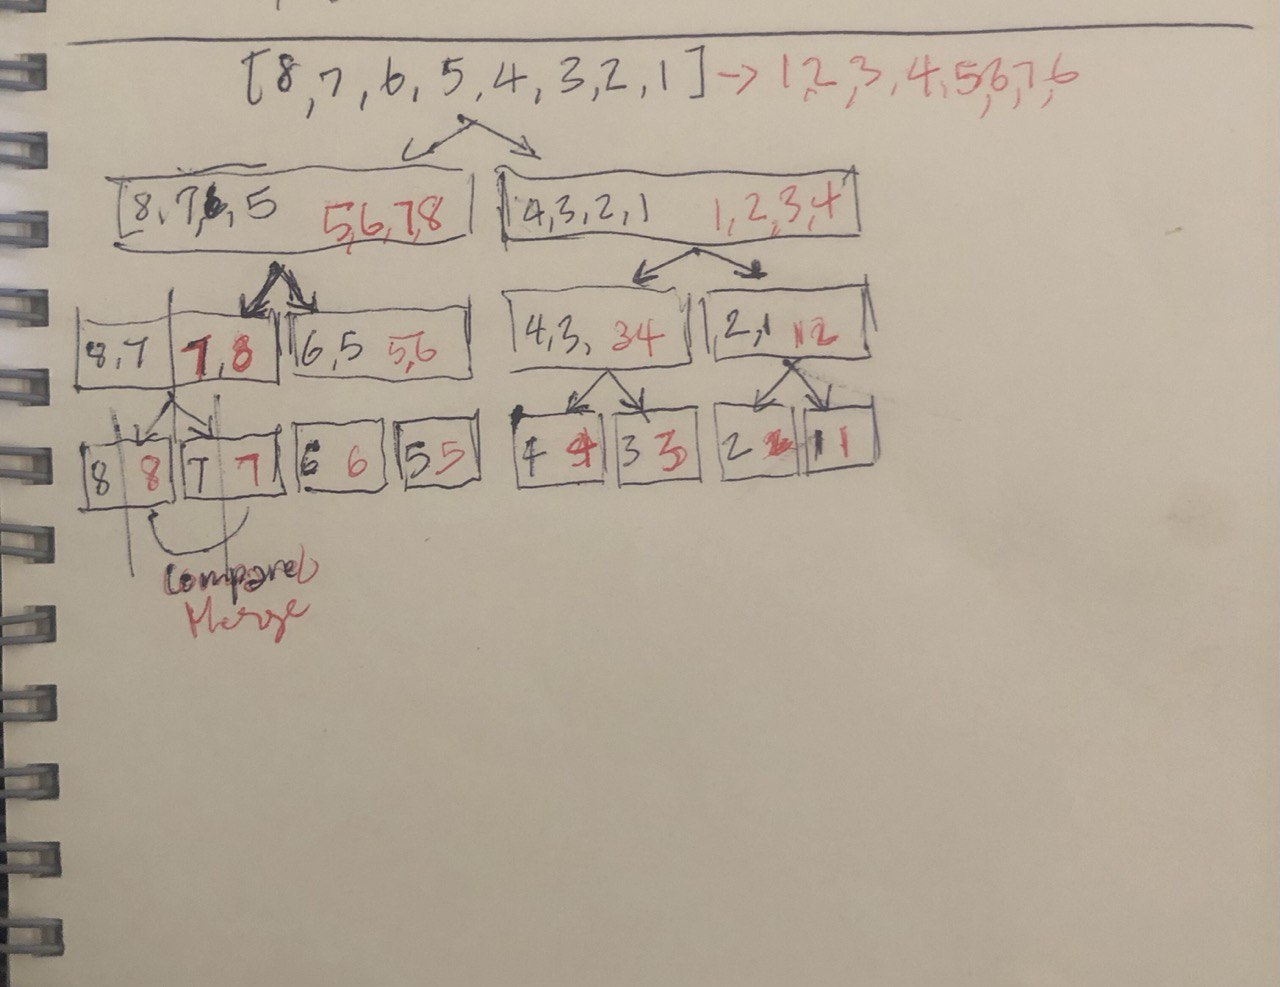 [8,7,6,5,4,3,2,1] → 1,2,3,4,5,6,7,6
8,7,6,5 5,6,7,8 4,3,2,1 1,2,3,4
8,7 7,8 6,5 5,6 4,3, 34 2,1 12
8 8 7 7 6 6 5 5 4 4 3 3 2 2 1 1
Compare
Merge